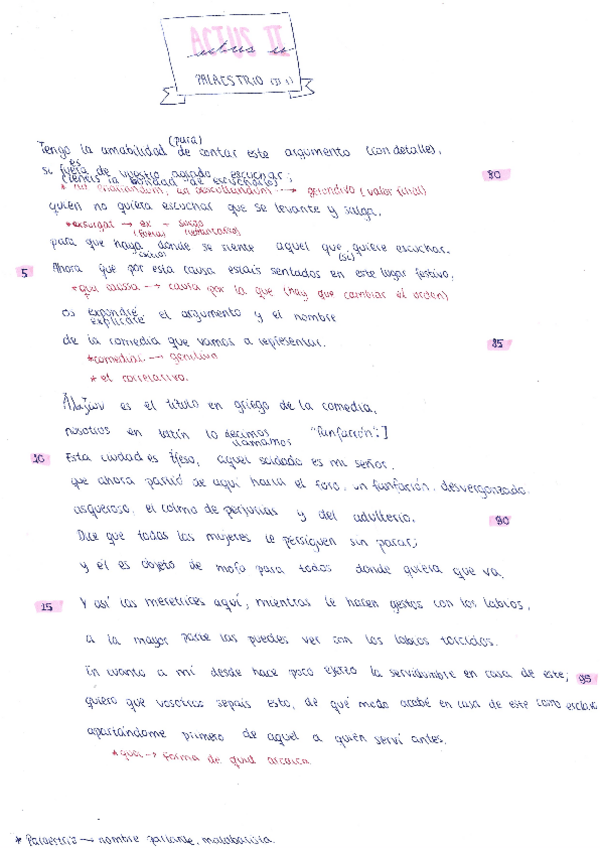 ACTUS II
PALAESTRIO (II 1)
(para)
Tengo la amabilidad de contar este argumento (con detalle),
es
si fuera de vuestro agrado escuchar; 80
(tenéis la bondad de escucharlo)
gerundivo (valor final)
quien no quiera escuchar que se levante y salga,
*exsurgat → ex - surgo
(fuera) (levantarse)
para que haya donde se siente aquel que quiere escuchar.
(si)
5 Ahora que por esta causa estáis sentados en este lugar festivo,
*qua causa → causa por la que (hay que cambiar el orden)
os expondré el argumento y el nombre
explicaré
de la comedia que vamos a representar. 85
*comediai → genitivo
* el correlativo.
Ἀλαζών es el título en griego de la comedia,
nosotros en latín lo decimos "fanfarrón".]
llamamos
10 Esta ciudad es Éfeso, aquel soldado es mi señor,
que ahora partió de aquí hacia el foro, un fanfarrón, desvergonzado
asqueroso, el colmo de perjurias y del adulterio. 90
Dice que todas las mujeres le persiguen sin parar;
y él es objeto de mofa para todos donde quiera que va.
15 Y así las meretrices aquí, mientras le hacen gestos con los labios,
a la mayor parte las puedes ver con los labios torcidos.
En cuanto a mí desde hace poco ejerzo la servidumbre en casa de este; 95
quiero que vosotros sepáis esto, de qué modo acabé en casa de este como esclavo
apartándome primero de aquel a quien serví antes.
*qui → forma de quid arcaica
* Palaestrio → nombre parlante, malabarista.